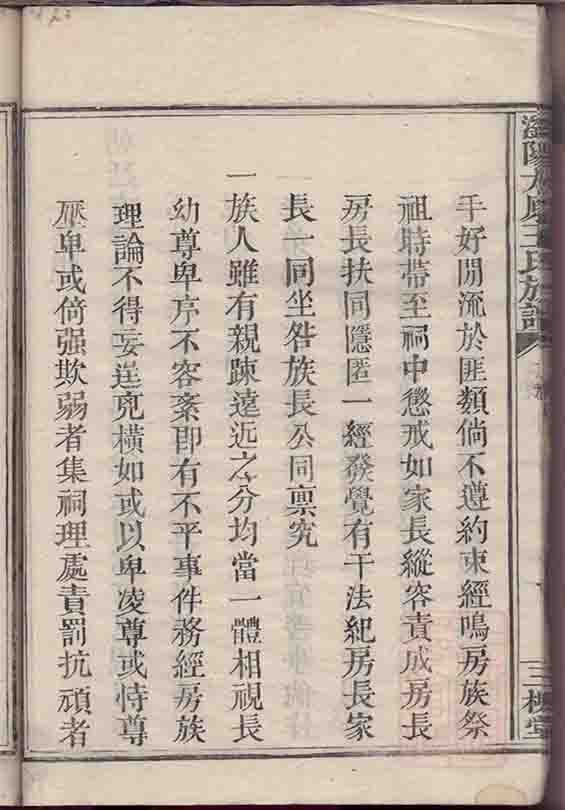 瀏陽太原王氏族譜
三槐堂
手好閒流於匪類倘不遵約束經鳴房族祭
祖時帶至祠中懲戒如家長縱容責成房長
房長扶同隱匿一經發覺有干法紀房長家
長一同坐咎族長公同禀究
一族人雖有親踈遠近之分均當一體相視長
幼尊卑序不容紊即有不平事件務經房族
理論不得妄逞兇橫如或以卑凌尊或恃尊
壓卑或倚强欺弱者集祠理處責罰抗頑者